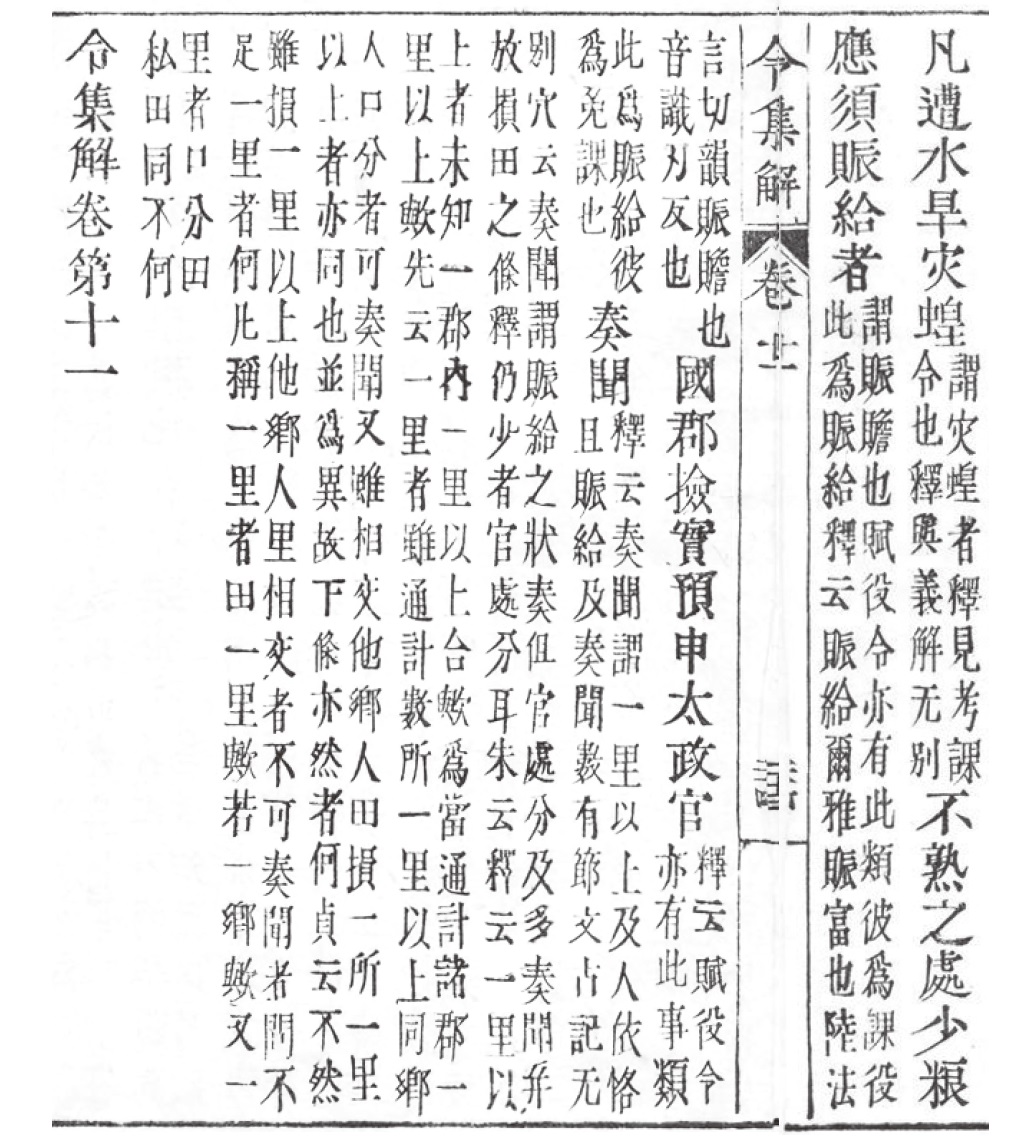 凡遭水旱灾蝗謂灾蝗者釋見考課令也釋與義解无別不熟之處少粮
應須賑給者謂賑贍也賦役令亦有此類彼爲課役此爲賑給釋云賑給爾雅賑富也陸法
令集解 卷十一
言切韻賑贍也音識刃反也國郡撿實預申太政官釋云賦役令亦有此事類
此爲賑給彼爲免課也奏聞釋云奏聞謂一里以上及人依恪且賑給及奏聞數有節文古記无
別穴云奏聞謂賑給之狀奏但官處分及多奏聞并
放損田之條釋仍少者官處分耳朱云釋云一里以
上者未知一郡內一里以上台歟爲當通計諸郡一
里以上歟先云一里者雖通計數所一里以上同鄉
人口分者可奏聞又雖相交他鄉人田損一所一里
以上者亦同也並爲異故下條亦然者何貞云不然
雖損一里以上他鄉人里相交者不可奏聞者問不
足一里者何凡稱一里者田一里歟若一鄉歟又一
里者口分田
私田同不何
令集解卷第十一